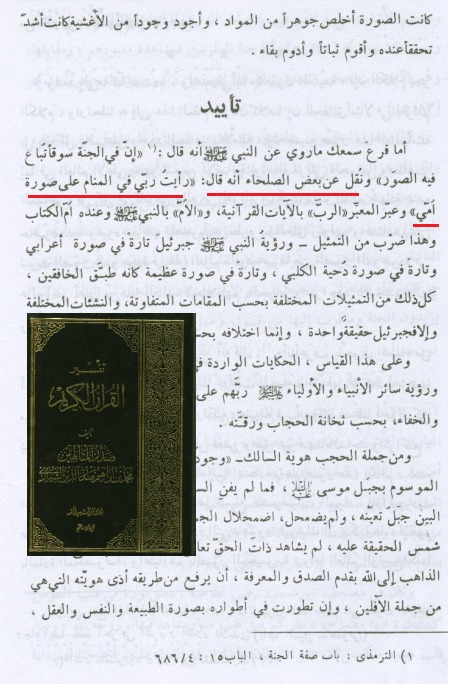 كانت الصورة أخلص جوهراً من المواد ، وأجود وجوداً من الأغشية كانت أشدّ
تحققاً عنده وأقوم ثباتاً وأدوم بقاء .
تأييد
أما قرع سمعك ماروي عن النبي ﷺ أنه قال :(١) «إنّ في الجنّة سوقاً تباع
فيه الصور» ونُقل عن بعض الصلحاء أنه قال: «رأيت ربّي في المنام على صورة
أمّي» وعبر المعبّر «الربّ» بالآيات القرآنية، و«الأمّ» بالنبي ﷺ وعنده أمّ الكتاب
وهذا ضرب من التمثيل ــ ورؤية النبي ﷺ جبرئيل تارة في صورة أعرابي
وتارة في صورة دحية الكلبي ، وتارة في صورة عظيمة كانه طبّق الخافقين ،
كل ذلك من التمثيلات المختلفة بحسب المقامات المتفاوتة، والنشئات المختلفة
وإلا فجبرئيل حقيقة واحدة ، وإنما اختلافه بحس
وعلى هذا القياس ، الحكايات الواردة ف
ورؤية سائر الأنبياء والأولياء ربّهم على
والخفاء، بحسب ثخانة الحجاب ورقته .
ومن جملة الحجب هوية السالك ــ «وجود
الموسوم بجبل موسى ، فما لم يفن الس
البين جبلّ تعيّنه ، ولم يضمحل، اضمحلال الجم
شمس الحقيقة عليه ، لم يشاهد ذات الحقّ تعا
الذاهب إلى الله بقدم الصدق والمعرفة ، أن يرفع من طريقه أذى هويّته التي هي
من جملة الآفلين ، وإن تطورت في أطواره بصورة الطبيعة والنفس والعقل ،
١) الترمذى : باب صفة الجنة ، الباب ١٥ : ٦٨٦/٤
تفسير
القرآن الكريم
تأليف
صدر المتألهين